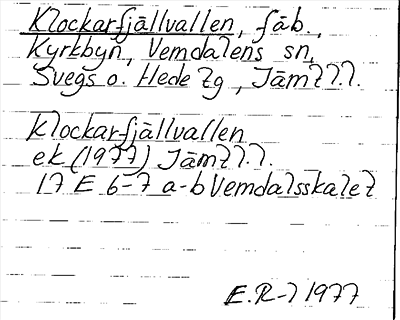 Klockarfjällvallen, fäb.,
Kyrkbyn, Vemdalens sn,
Svegs o. Hede tg, Jämtl.l.
Klockarfjällvallen
ek (1977) Jämtl.l.
17 E 6-7 a-b Vemdalsskalet
E.R-l 1977